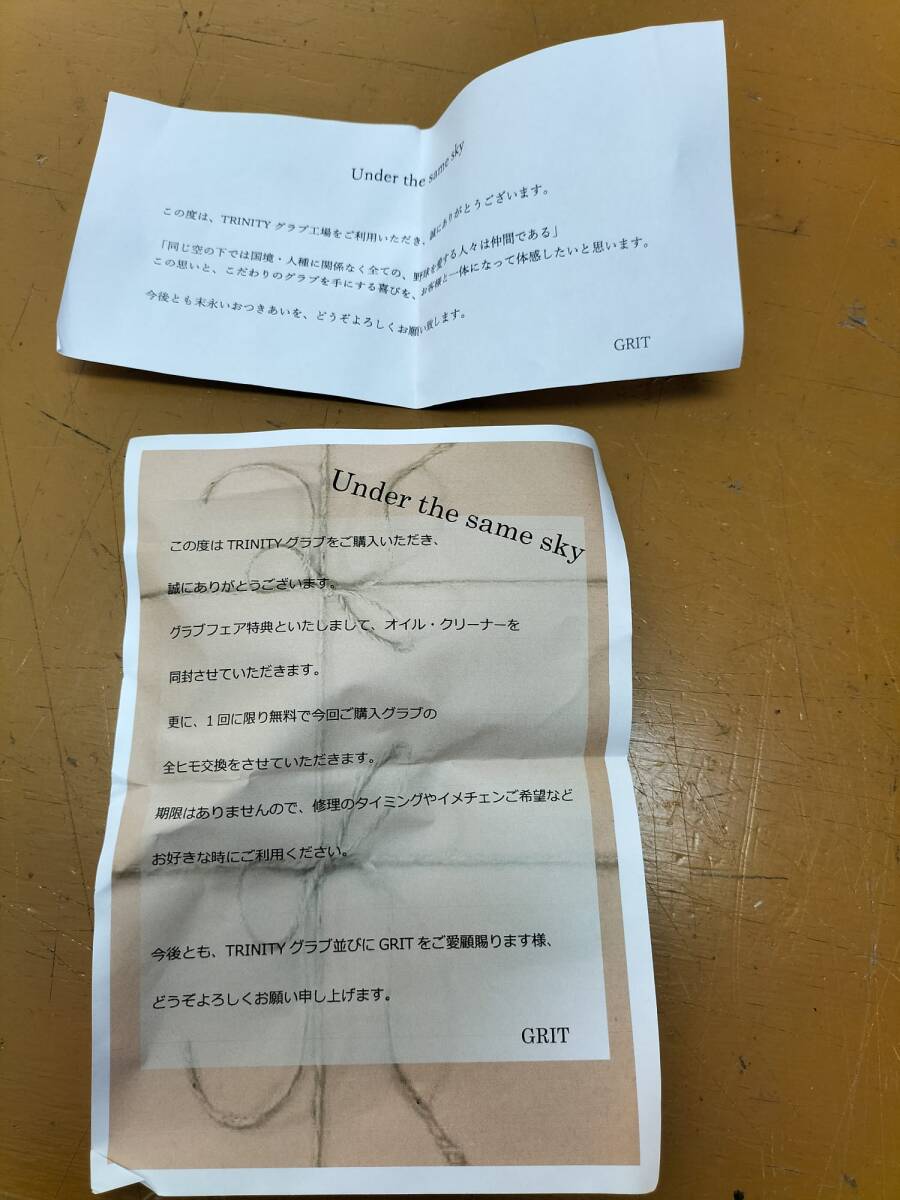 Under the same sky
この度は、TRINITY グラブ工場をご利用いただき、誠にありがとうございます。
「同じ空の下では国境・人種に関係なく全ての、野球を愛する人々は仲間である」
この思いと、こだわりのグラブを手にする喜びを、お客様と一体になって体感したいと思います。
今後とも末永いおつきあいを、どうぞよろしくお願い致します。
GRIT
Under the same sky
この度は TRINITY グラブをご購入いただき、
誠にありがとうございます。
グラブフェア特典といたしまして、オイル・クリーナーを
同封させていただきます。
更に、1 回に限り無料で今回ご購入グラブの
全ヒモ交換をさせていただきます。
期限はありませんので、修理のタイミングやイメチェンご希望など
お好きな時にご利用ください。
今後とも、TRINITY グラブ並びに GRIT をご愛顧賜ります様、
どうぞよろしくお願い申し上げます。
GRIT